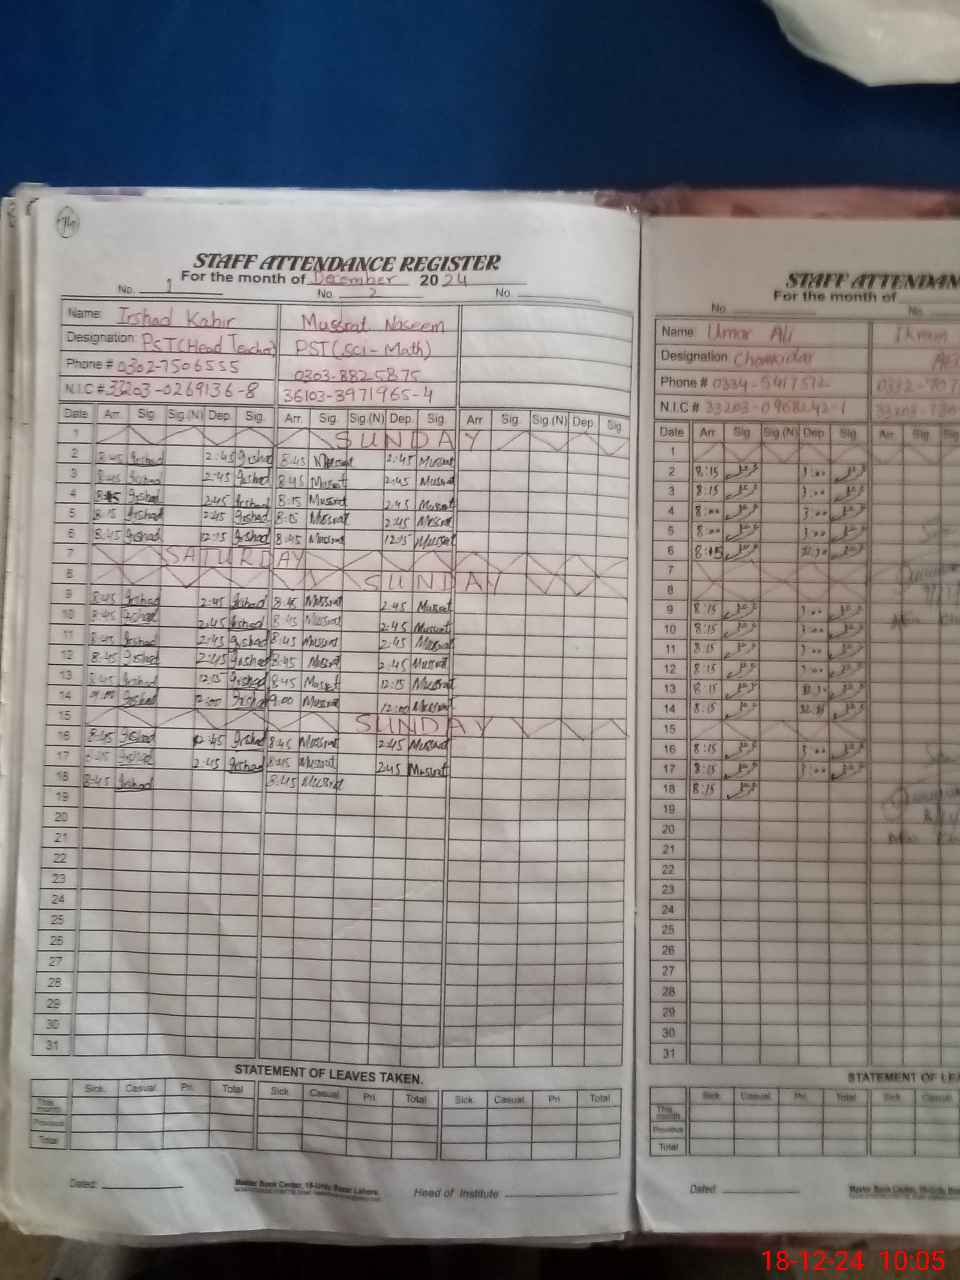 STAFF ATTENDANCE REGISTER
For the month of December 2024
No. 1 No. 2 No.
Name: Irshad Kabir Mussrat Naseem
Designation: PST(Head Teacher) PST (sci-Math)
Phone # 0302-7506555 0303-8825875
N.I.C # 33203-0269136-8 36103-3971965-4
Date Arr. Sig. Sig.(N) Dep. Sig. Arr. Sig. Sig.(N) Dep. Sig. Arr. Sig. Sig.(N) Dep. Sig.
1 SUNDAY
2 8:45 Irshad 2:45 Irshad 8:45 Mussrat 2:45 Mussrat
3 8:45 Irshad 2:45 Irshad 8:45 Mussrat 2:45 Mussrat
4 Irshad 2:45 Irshad 8:15 Mussrat 2:45 Mussrat
5 8:15 Irshad 2:45 Irshad 8:15 Mussrat 2:45 Mussrat
6 8:45 Irshad 12:15 Irshad 8:45 Mussrat 12:15 Mussrat
7 SATURDAY
8 SUNDAY
9 8:45 Irshad 2:45 Irshad 8:45 Mussrat 2:45 Mussrat
10 8:45 Irshad 2:45 Irshad 8:45 Mussrat 2:45 Mussrat
11 8:45 Irshad 2:45 Irshad 8:45 Mussrat 2:45 Mussrat
12 8:45 Irshad 2:45 Irshad 8:45 Mussrat 2:45 Mussrat
13 8:45 Irshad 12:15 Irshad 8:45 Mussrat 12:15 Mussrat
14 Irshad 12:00 Irshad 9:00 Mussrat 12:00 Mussrat
15 SUNDAY
16 8:45 Irshad 2:45 Irshad 8:45 Mussrat 2:45 Mussrat
17 8:45 Irshad 2:45 Irshad 8:45 Mussrat 2:45 Mussrat
18 8:45 Irshad 8:45 Mussrat
19
20
21
22
23
24
25
26
27
28
29
30
31
STATEMENT OF LEAVES TAKEN.
Sick. Casual. Pri. Total Sick. Casual. Pri Total Sick. Casual. Pri Total
This month
Previous
Total
Dated: Master Book Center, 18-Urdu Bazar Lahore. Head of Institute
STAFF ATTENDAN
For the month of
No. No.
Name: Umar Ali
Designation: Chowkidar
Phone # 0334-5417512
N.I.C # 33203-0968242-1
Date Arr. Sig. Sig.(N) Dep. Sig. Arr. Sig.
1
2 8:15 3:00
3 8:15 3:00
4 8:00 3:00
5 8:00 3:00
6 8:15
7
8
9 8:15 3:00
10 8:15 3:00
11 8:15 3:00
12 8:15 3:00
13 8:15
14 8:15
15
16 8:15 3:00
17 8:15 3:00
18 8:15
19
20
21
22
23
24
25
26
27
28
29
30
31
STATEMENT OF LEA
Sick. Casual. Pri. Total Sick. Casual
This month
Previous
Total
Dated: Master Book Center, 18-Urdu
18-12-24 10:05